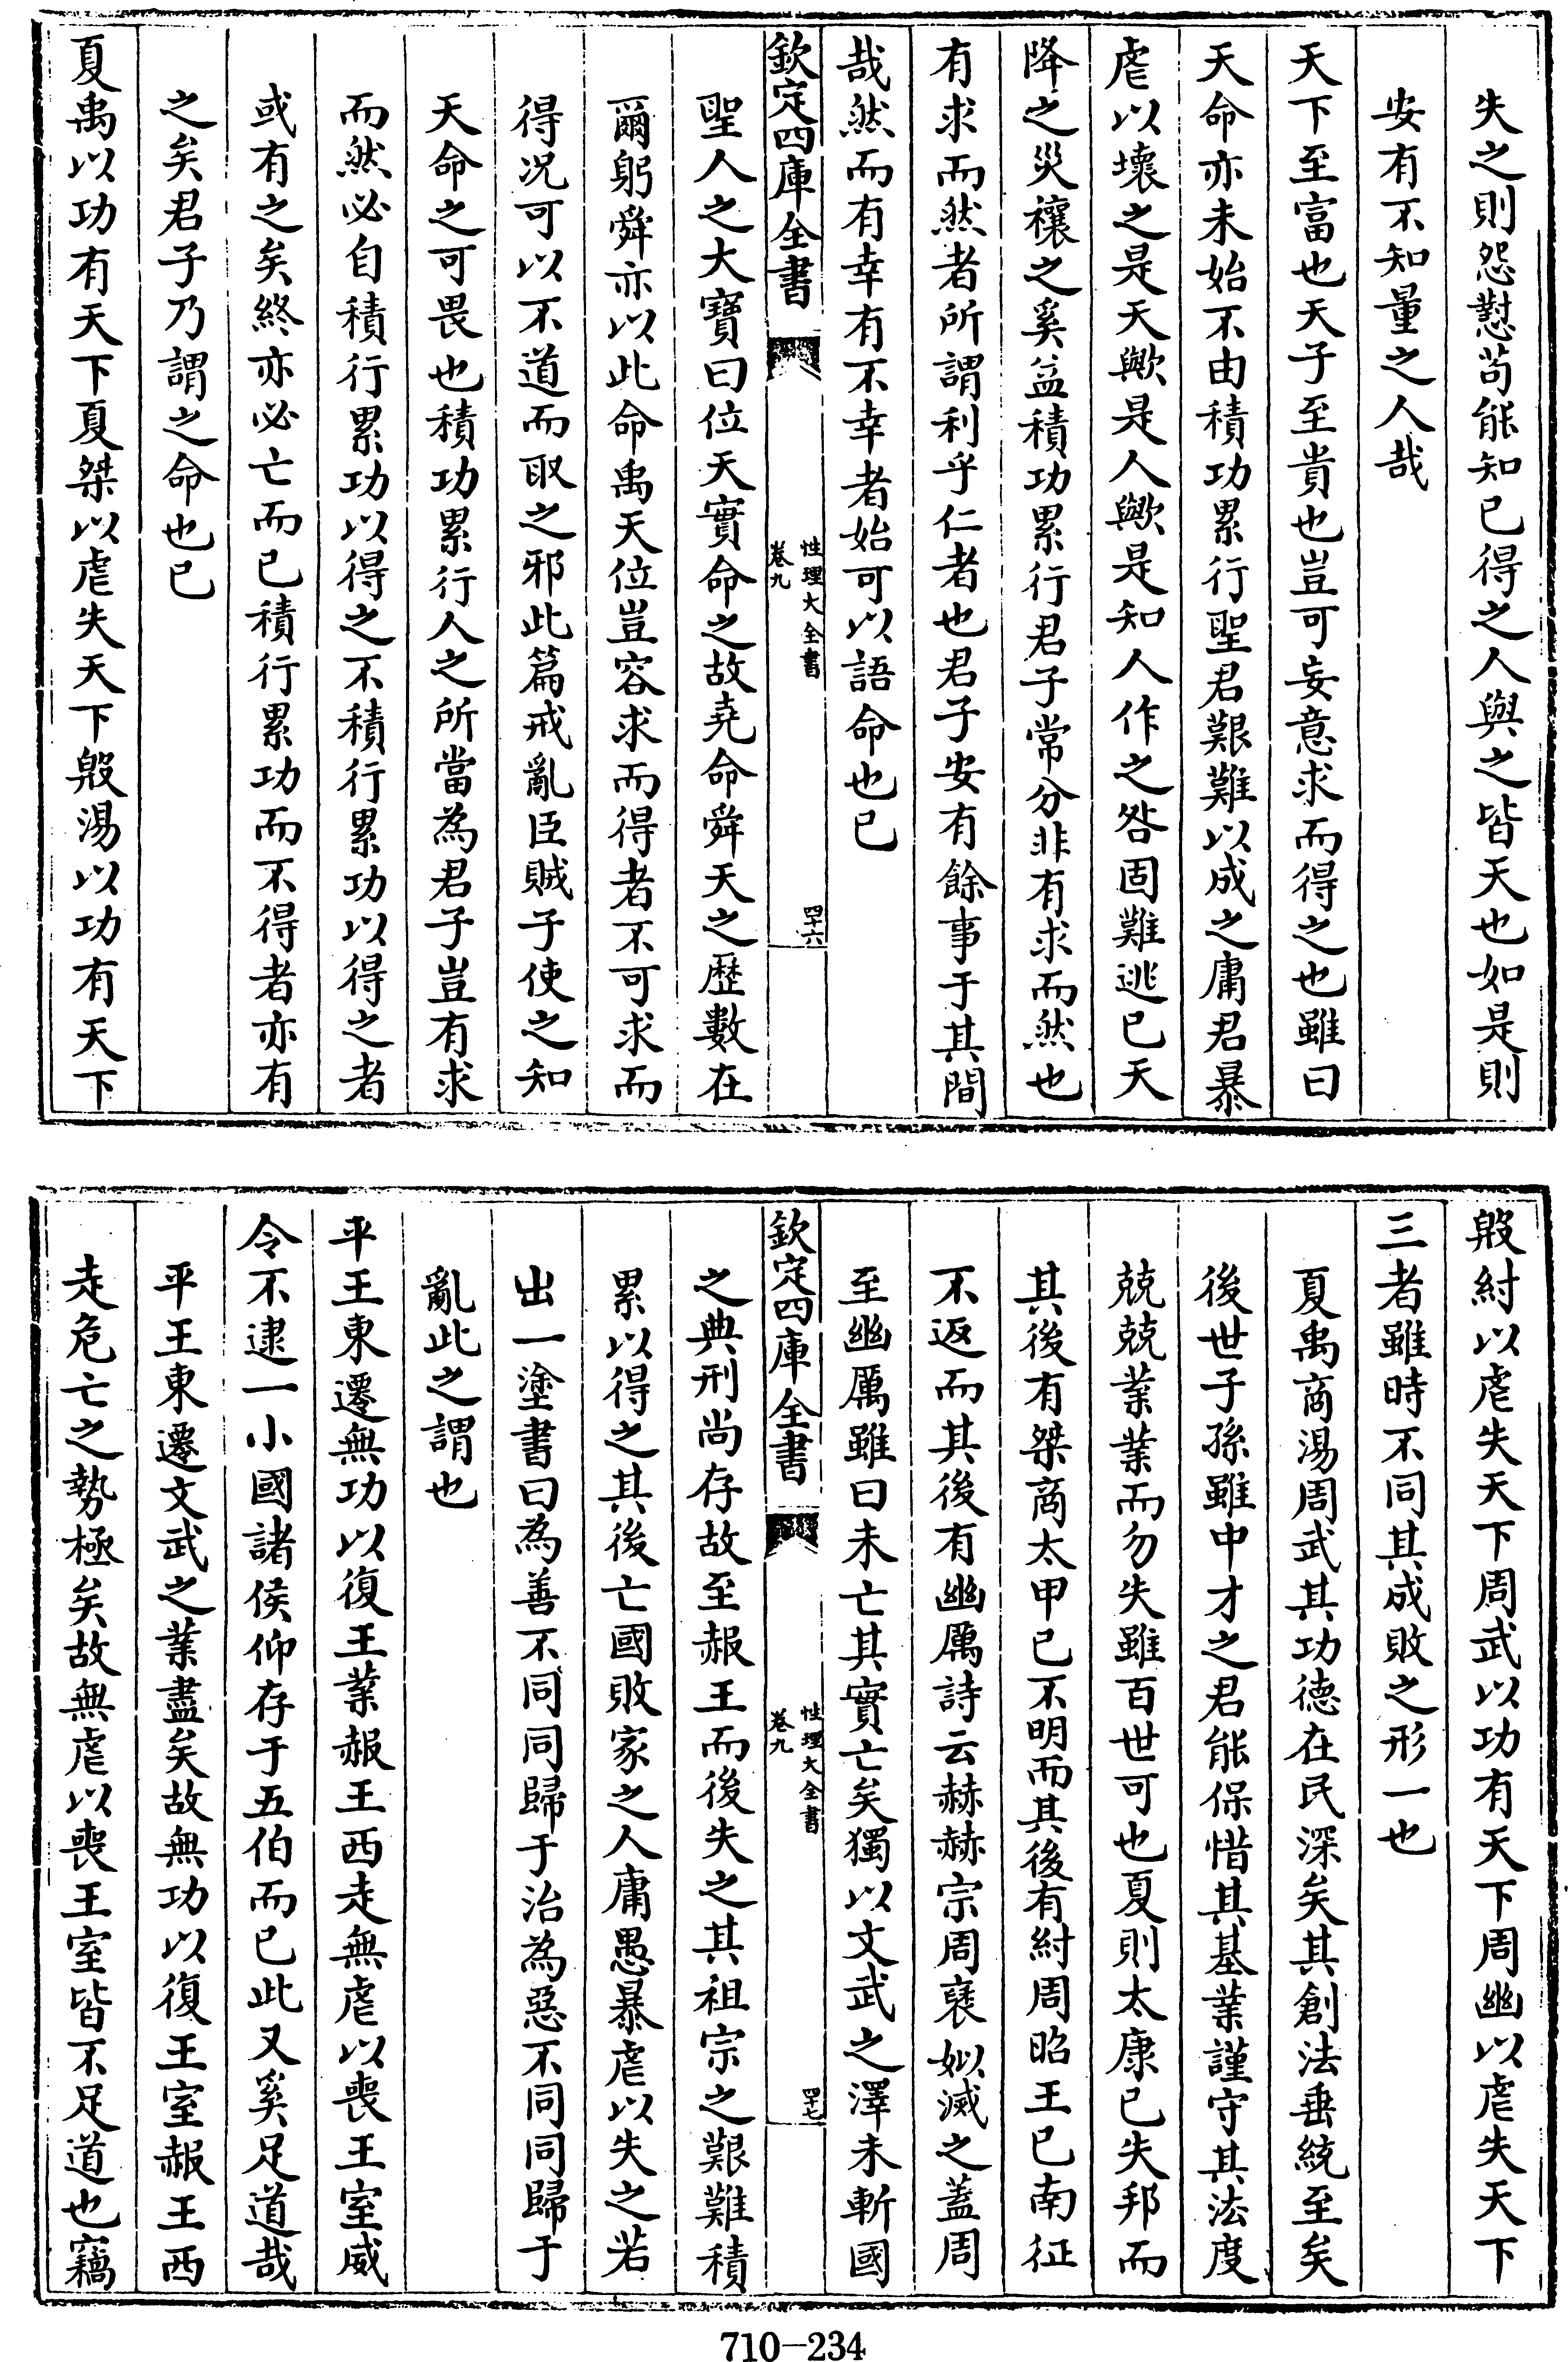 失之則怨懟苟能知已得之人與之皆天也如是則
安有不知量之人哉
天下至富也天子至貴也豈可妄意求而得之也雖曰
天命亦未始不由積功累行聖君艱難以成之庸君暴
虐以壞之是天歟是人歟是知人作之咎固難逃已天
降之災禳之奚益積功累行君子常分非有求而然也
有求而然者所謂利乎仁者也君子安有餘事于其間
哉然而有幸有不幸者始可以語命也已
欽定四庫全書
性理大全書
卷九
四十六
聖人之大寶曰位天實命之故堯命舜天之歷數在
爾躬舜亦以此命禹天位豈容求而得者不可求而
得况可以不道而取之邪此篇戒亂臣賊子使之知
天命之可畏也積功累行人之所當為君子豈有求
而然必自積行累功以得之不積行累功以得之者
或有之矣終亦必亡而已積行累功而不得者亦有
之矣君子乃謂之命也已
夏禹以功有天下夏桀以虐失天下殷湯以功有天下
殷紂以虐失天下周武以功有天下周幽以虐失天下
三者雖時不同其成敗之形一也
夏禹商湯周武其功德在民深矣其創法垂統至矣
後世子孫雖中才之君能保惜其基業謹守其法度
兢兢業業而勿失雖百世可也夏則太康已失邦而
其後有桀商太甲已不明而其後有紂周昭王已南征
不返而其後有幽厲詩云赫赫宗周襃姒滅之蓋周
至幽厲雖曰未亡其實亡矣獨以文武之澤未斬國
欽定四庫全書
性理大全書
卷九
四十七
之典刑尚存故至赧王而後失之其祖宗之艱難積
累以得之其後亡國敗家之人庸愚暴虐以失之若
出一塗書曰為善不同同歸于治為惡不同同歸于
亂此之謂也
平王東遷無功以復王業赧王西走無虐以喪王室威
令不逮一小國諸侯仰存于五伯而已此又奚足道哉
平王東遷文武之業盡矣故無功以復王室赧王西
走危亡之勢極矣故無虐以喪王室皆不足道也竊
710-234